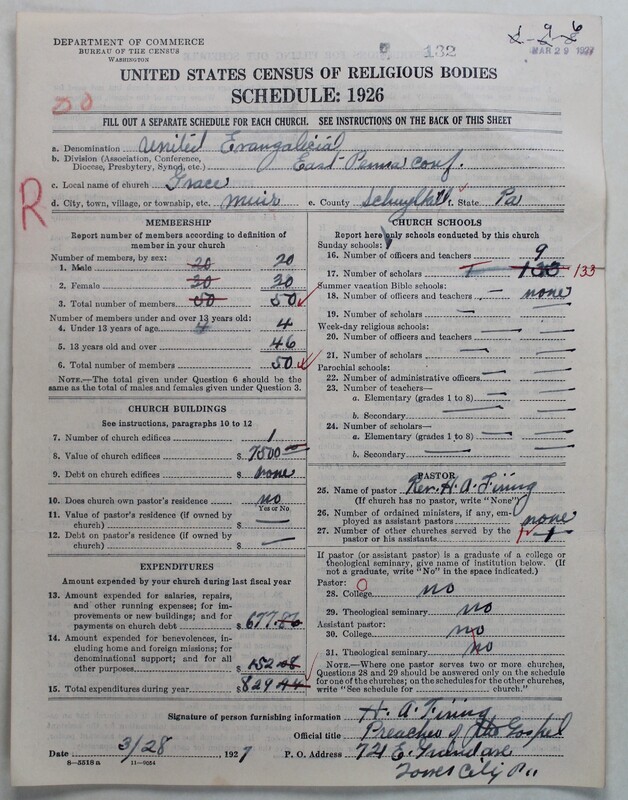 DEPARTMENT OF COMMERCE
BUREAU OF THE CENSUS
WASHINGTON
132
MAR 29 1927
UNITED STATES CENSUS OF RELIGIOUS BODIES
SCHEDULE: 1926
FILL OUT A SEPARATE SCHEDULE FOR EACH CHURCH. SEE INSTRUCTIONS ON THE BACK OF THIS SHEET
a. Denomination United Evangalicial
b. Division (Association, Conference, Diocese, Presbytery, Synod, etc.) East Penna conf.
c. Local name of church Grace
R
d. City, town, village, or township, etc. Muir e. County Schuylkill f. State Pa
MEMBERSHIP
Report number of members according to definition of member in your church
Number of members, by sex:
1. Male 20 20
2. Female 30 30
3. Total number of members 50 50
Number of members under and over 13 years old:
4. Under 13 years of age 4 4
5. 13 years old and over 46
6. Total number of members 50
NOTE.—The total given under Question 6 should be the same as the total of males and females given under Question 3.
CHURCH BUILDINGS
See instructions, paragraphs 10 to 12
7. Number of church edifices 1
8. Value of church edifices $ 7500
9. Debt on church edifices $ none
10. Does church own pastor's residence no
Yes or No
11. Value of pastor's residence (if owned by church) $ —
12. Debt on pastor's residence (if owned by church) $ —
EXPENDITURES
Amount expended by your church during last fiscal year
13. Amount expended for salaries, repairs, and other running expenses; for improvements or new buildings; and for payments on church debt $ 677.86
14. Amount expended for benevolences, including home and foreign missions; for denominational support; and for all other purposes $ 152.08
15. Total expenditures during year $ 829
CHURCH SCHOOLS
Report here only schools conducted by this church
Sunday schools:
16. Number of officers and teachers 9
17. Number of scholars 133 133
Summer vacation Bible schools:
18. Number of officers and teachers — none
19. Number of scholars —
Week-day religious schools:
20. Number of officers and teachers —
21. Number of scholars —
Parochial schools:
22. Number of administrative officers —
23. Number of teachers—
a. Elementary (grades 1 to 8) —
b. Secondary —
24. Number of scholars—
a. Elementary (grades 1 to 8) —
b. Secondary —
PASTOR
25. Name of pastor Rev. H. A. Firing
(If church has no pastor, write "None")
26. Number of ordained ministers, if any, employed as assistant pastors none
27. Number of other churches served by the pastor or his assistants 1
If pastor (or assistant pastor) is a graduate of a college or theological seminary, give name of institution below. (If not a graduate, write "No" in the space indicated.)
Pastor:
28. College no
29. Theological seminary no
Assistant pastor:
30. College no
31. Theological seminary no
NOTE.—Where one pastor serves two or more churches, Questions 28 and 29 should be answered only on the schedule for one of the churches; on the schedules for the other churches, write "See schedule for ........ church."
Signature of person furnishing information H. A. Firing
Official title Preacher of the Gospel
Date 3/28, 1927 P. O. Address 721 E. Grand ave
Tower City Pa
8—5518 a 11—9054